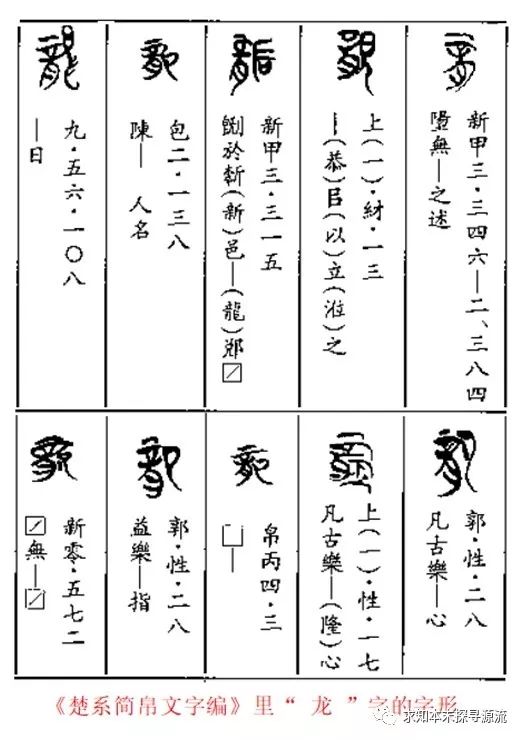 新甲三·三四六—二、三八四
無—之述
上(一)·紂·一三
—(恭)㠯(以)立(涖)之
新甲三·三一五
於新(新)邑—(龍)郢☐
包二·一三八
陳— 人名
九·五六·一〇八
—日
郭·性·二八
凡古樂—心
上(一)·性·一七
凡古樂—(隆)心
帛丙四·三
☐—
郭·性·二八
益樂—指
新零·五七二
☐無—☐
《楚系简帛文字编》里“ 龙 ”字的字形
求知本末探寻源流